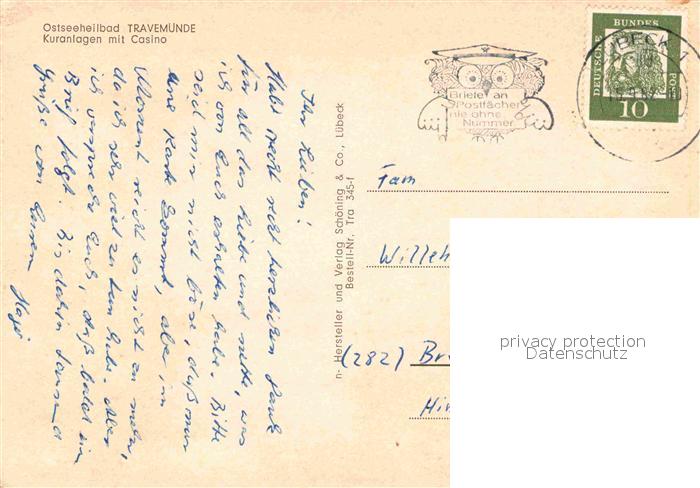 Ostseeheilbad TRAVEMÜNDE
Kuranlagen mit Casino
Ihr Lieben!
Habt recht recht herzlichen Dank
für all das Liebe und nette, was
ich von Euch erhalten habe. Bitte
seid mir nicht böse, daß nur
eine Karte kommt, aber im
Moment reicht es nicht zu mehr,
da ich sehr viel zu tun habe. Aber
ich verspreche Euch, daß bald ein
Brief folgt. Bis dahin tausend
Grüße von Eurem
n- Hersteller und Verlag Schöning & Co., Lübeck
Bestell-Nr. Tra 345-f
Briefe an
Postfächer
nie ohne
Nummer
DEUTSCHE BUNDESPOST
10
LÜBECK 1
Fam
Willeh
(282) Br
Hin
privacy protection
Datenschutz